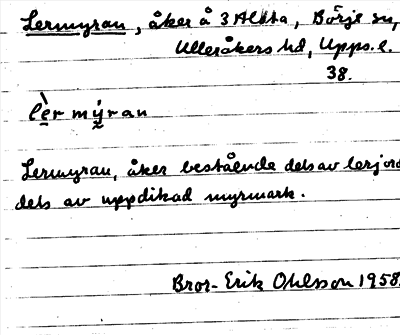 Lermyran, åker å 3 Altta, Börje sn,
Ulleråkers hd, Upps.l.
38.
lèr mýran
Lermyran, åker bestående dels av lerjord
dels av uppdikad myrmark.
Bror-Erik Ohlsson 1958.